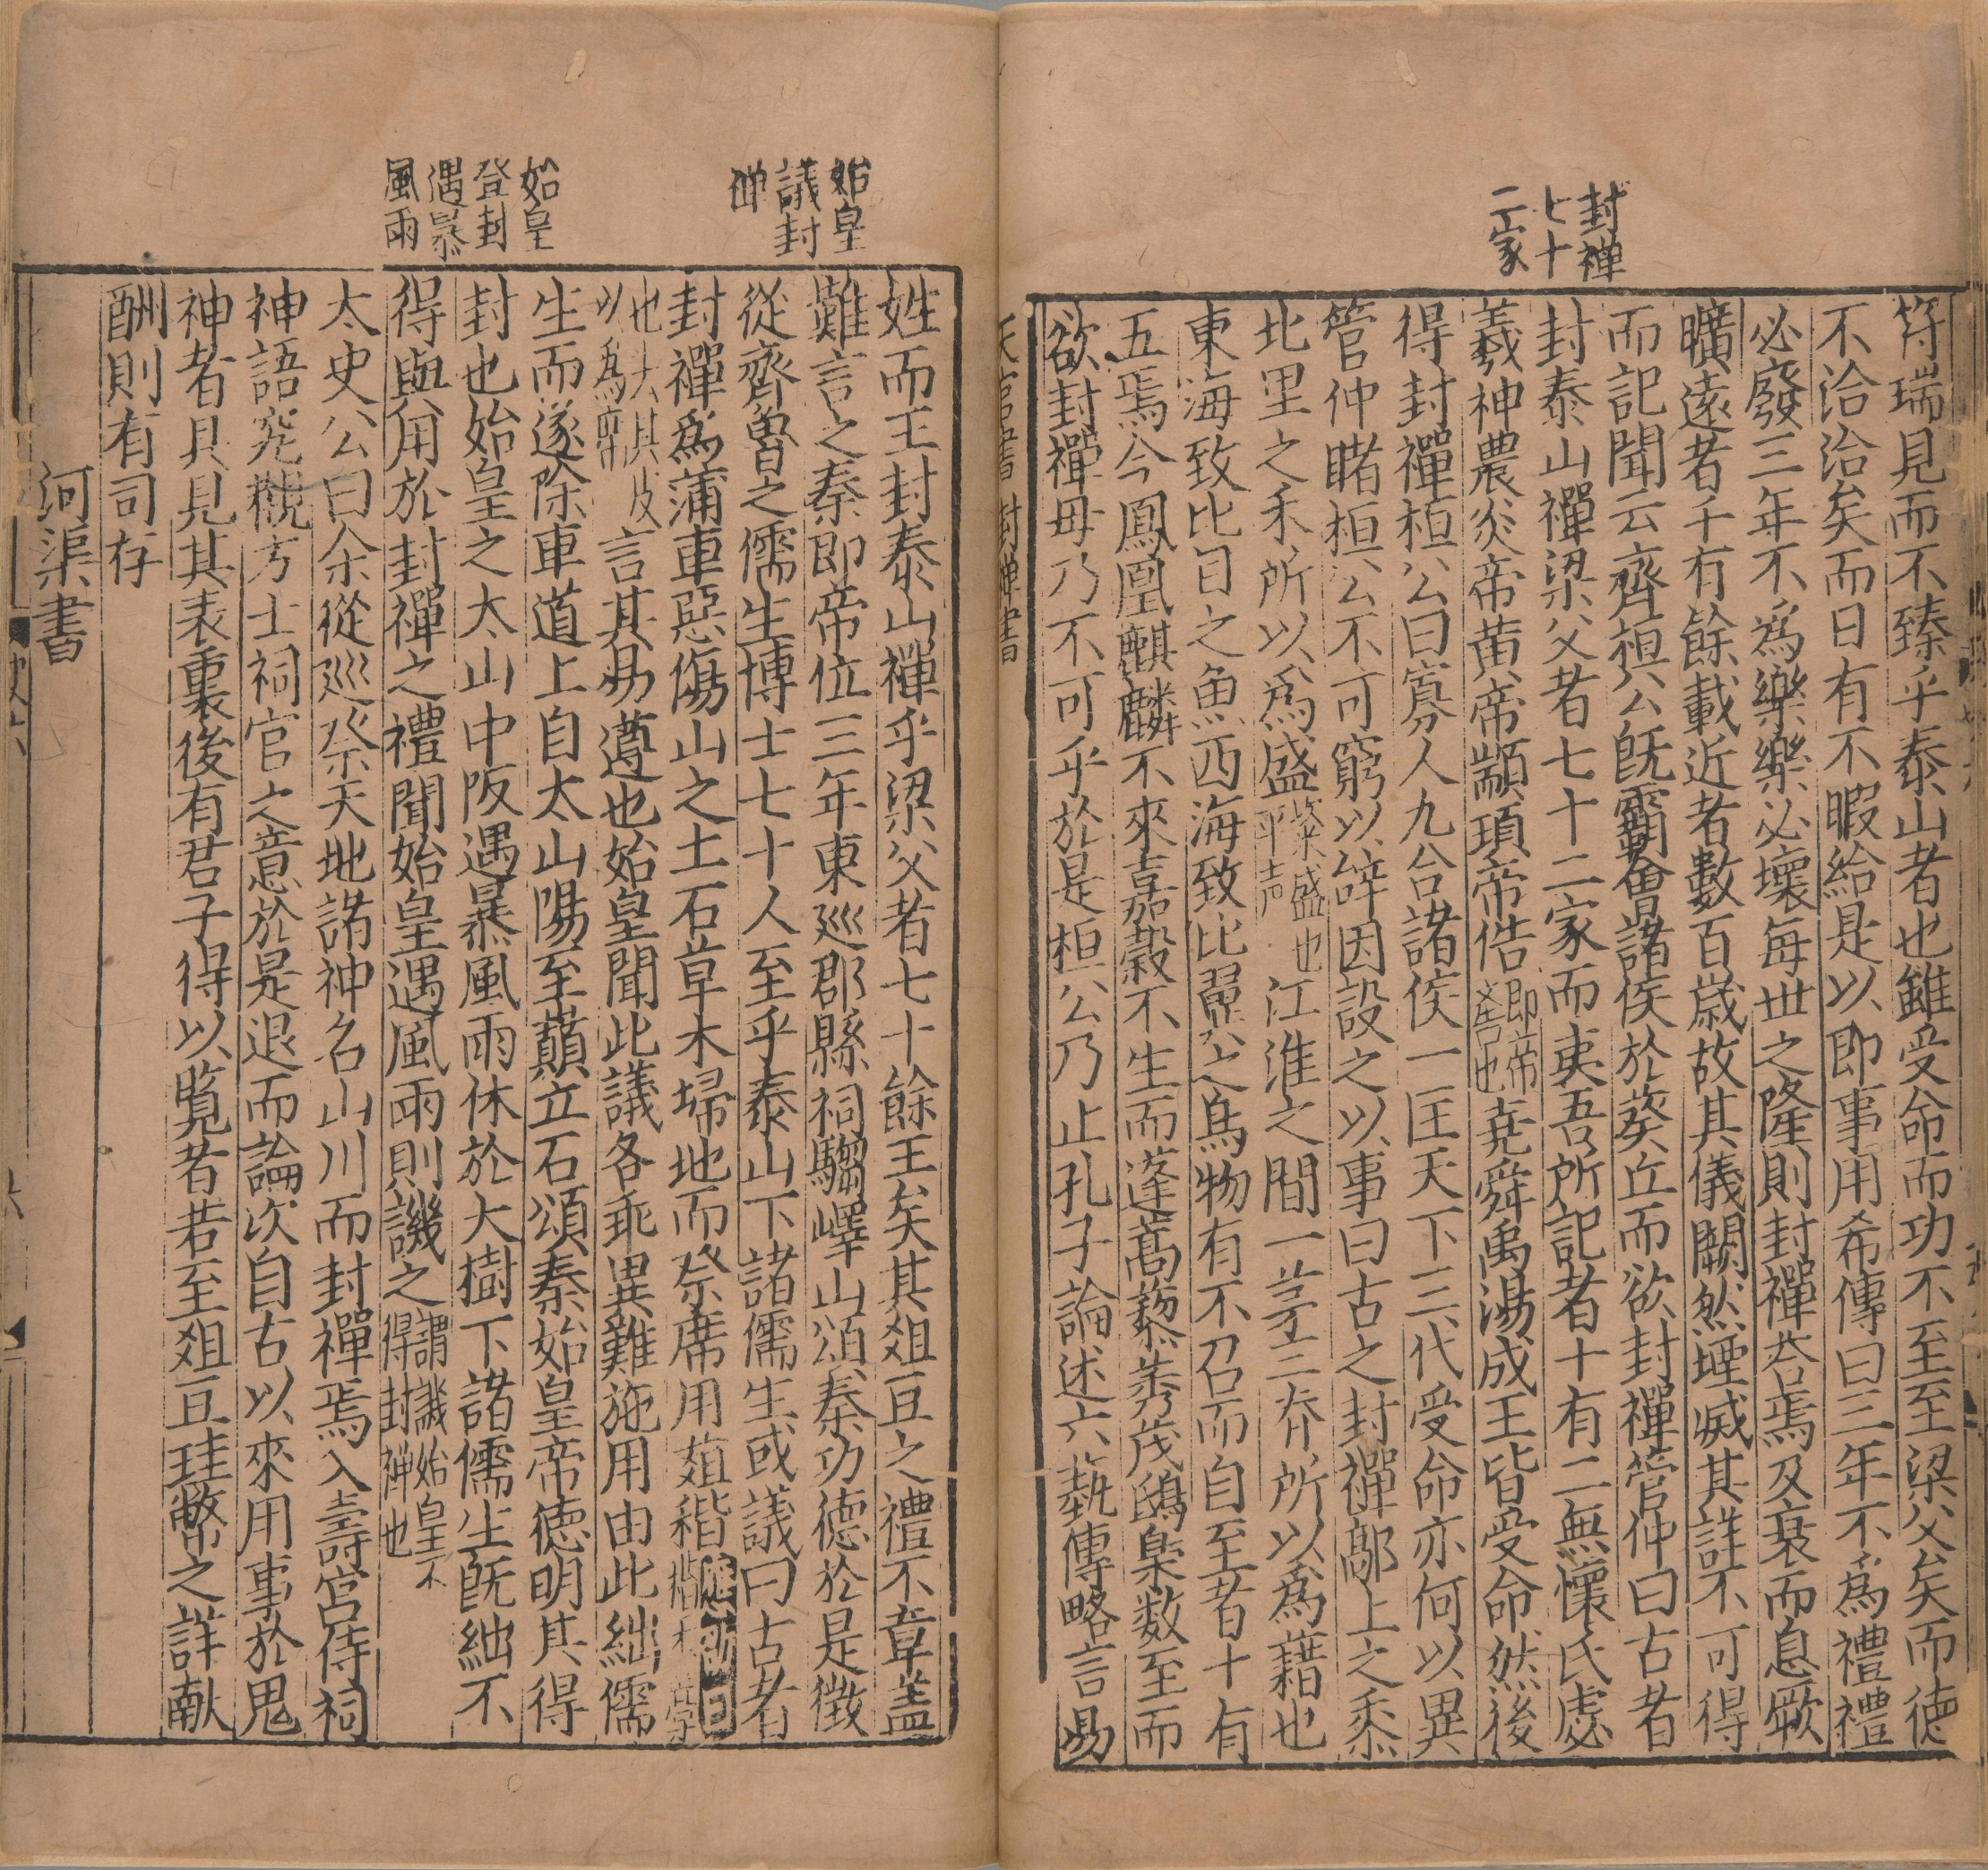 封禪
七十
二家
符瑞見而不臻乎泰山者也雖受命而功不至至梁父矣而德
不洽洽矣而日有不暇給是以即事用希傳曰三年不爲禮禮
必廢三年不爲樂樂必壞每世之隆則封禪荅焉及衰而息厥
曠遠者千有餘載近者數百歲故其儀闕然堙滅其詳不可得
而記聞云齊桓公既霸會諸侯於葵丘而欲封禪管仲曰古者
封泰山禪梁父者七十二家而夷吾所記者十有二無懷氏虙
羲神農炎帝黃帝顓頊帝俈即帝嚳也堯舜禹湯成王皆受命然後
得封禪桓公曰寡人九合諸侯一匡天下三代受命亦何以異
管仲睹桓公不可窮以辭因設之以事曰古之封禪鄗上之黍
北里之禾所以爲盛粢盛也平声江淮之間一茅三脊所以爲藉也
東海致比目之魚西海致比翼之鳥物有不召而自至者十有
五焉今鳳凰麒麟不來嘉穀不生而蓬蒿藜莠茂鴟梟数至而
欲封禪毋乃不可乎於是桓公乃止孔子論述六藝傳略言易
天官書 封禅書
始皇
議封
禅
始皇
登封
遇暴
風雨
姓而王封泰山禪乎梁父者七十餘王矣其俎豆之禮不章盖
難言之秦即帝位三年東巡郡縣祠騶嶧山頌秦功德於是徵
從齊魯之儒生博士七十人至乎泰山下諸儒生或議曰古者
封禪爲蒲車惡傷山之土石草木埽地而祭席用葅稭
言其易遵也始皇聞此議各乖異難施用由此絀儒
生而遂除車道上自太山陽至巔立石頌秦始皇帝德明其得
封也始皇之太山中阪遇暴風雨休於大樹下諸儒生既絀不
得與用於封禪之禮聞始皇遇風雨則譏之謂譏始皇不得封禅也
太史公曰余從巡祭天地諸神名山川而封禪焉入壽宮侍祠
神語究觀方士祠官之意於是退而論次自古以來用事於鬼
神者具見其表裏後有君子得以覧者若至俎豆珪幣之詳献
酬則有司存
河渠書
史六
六